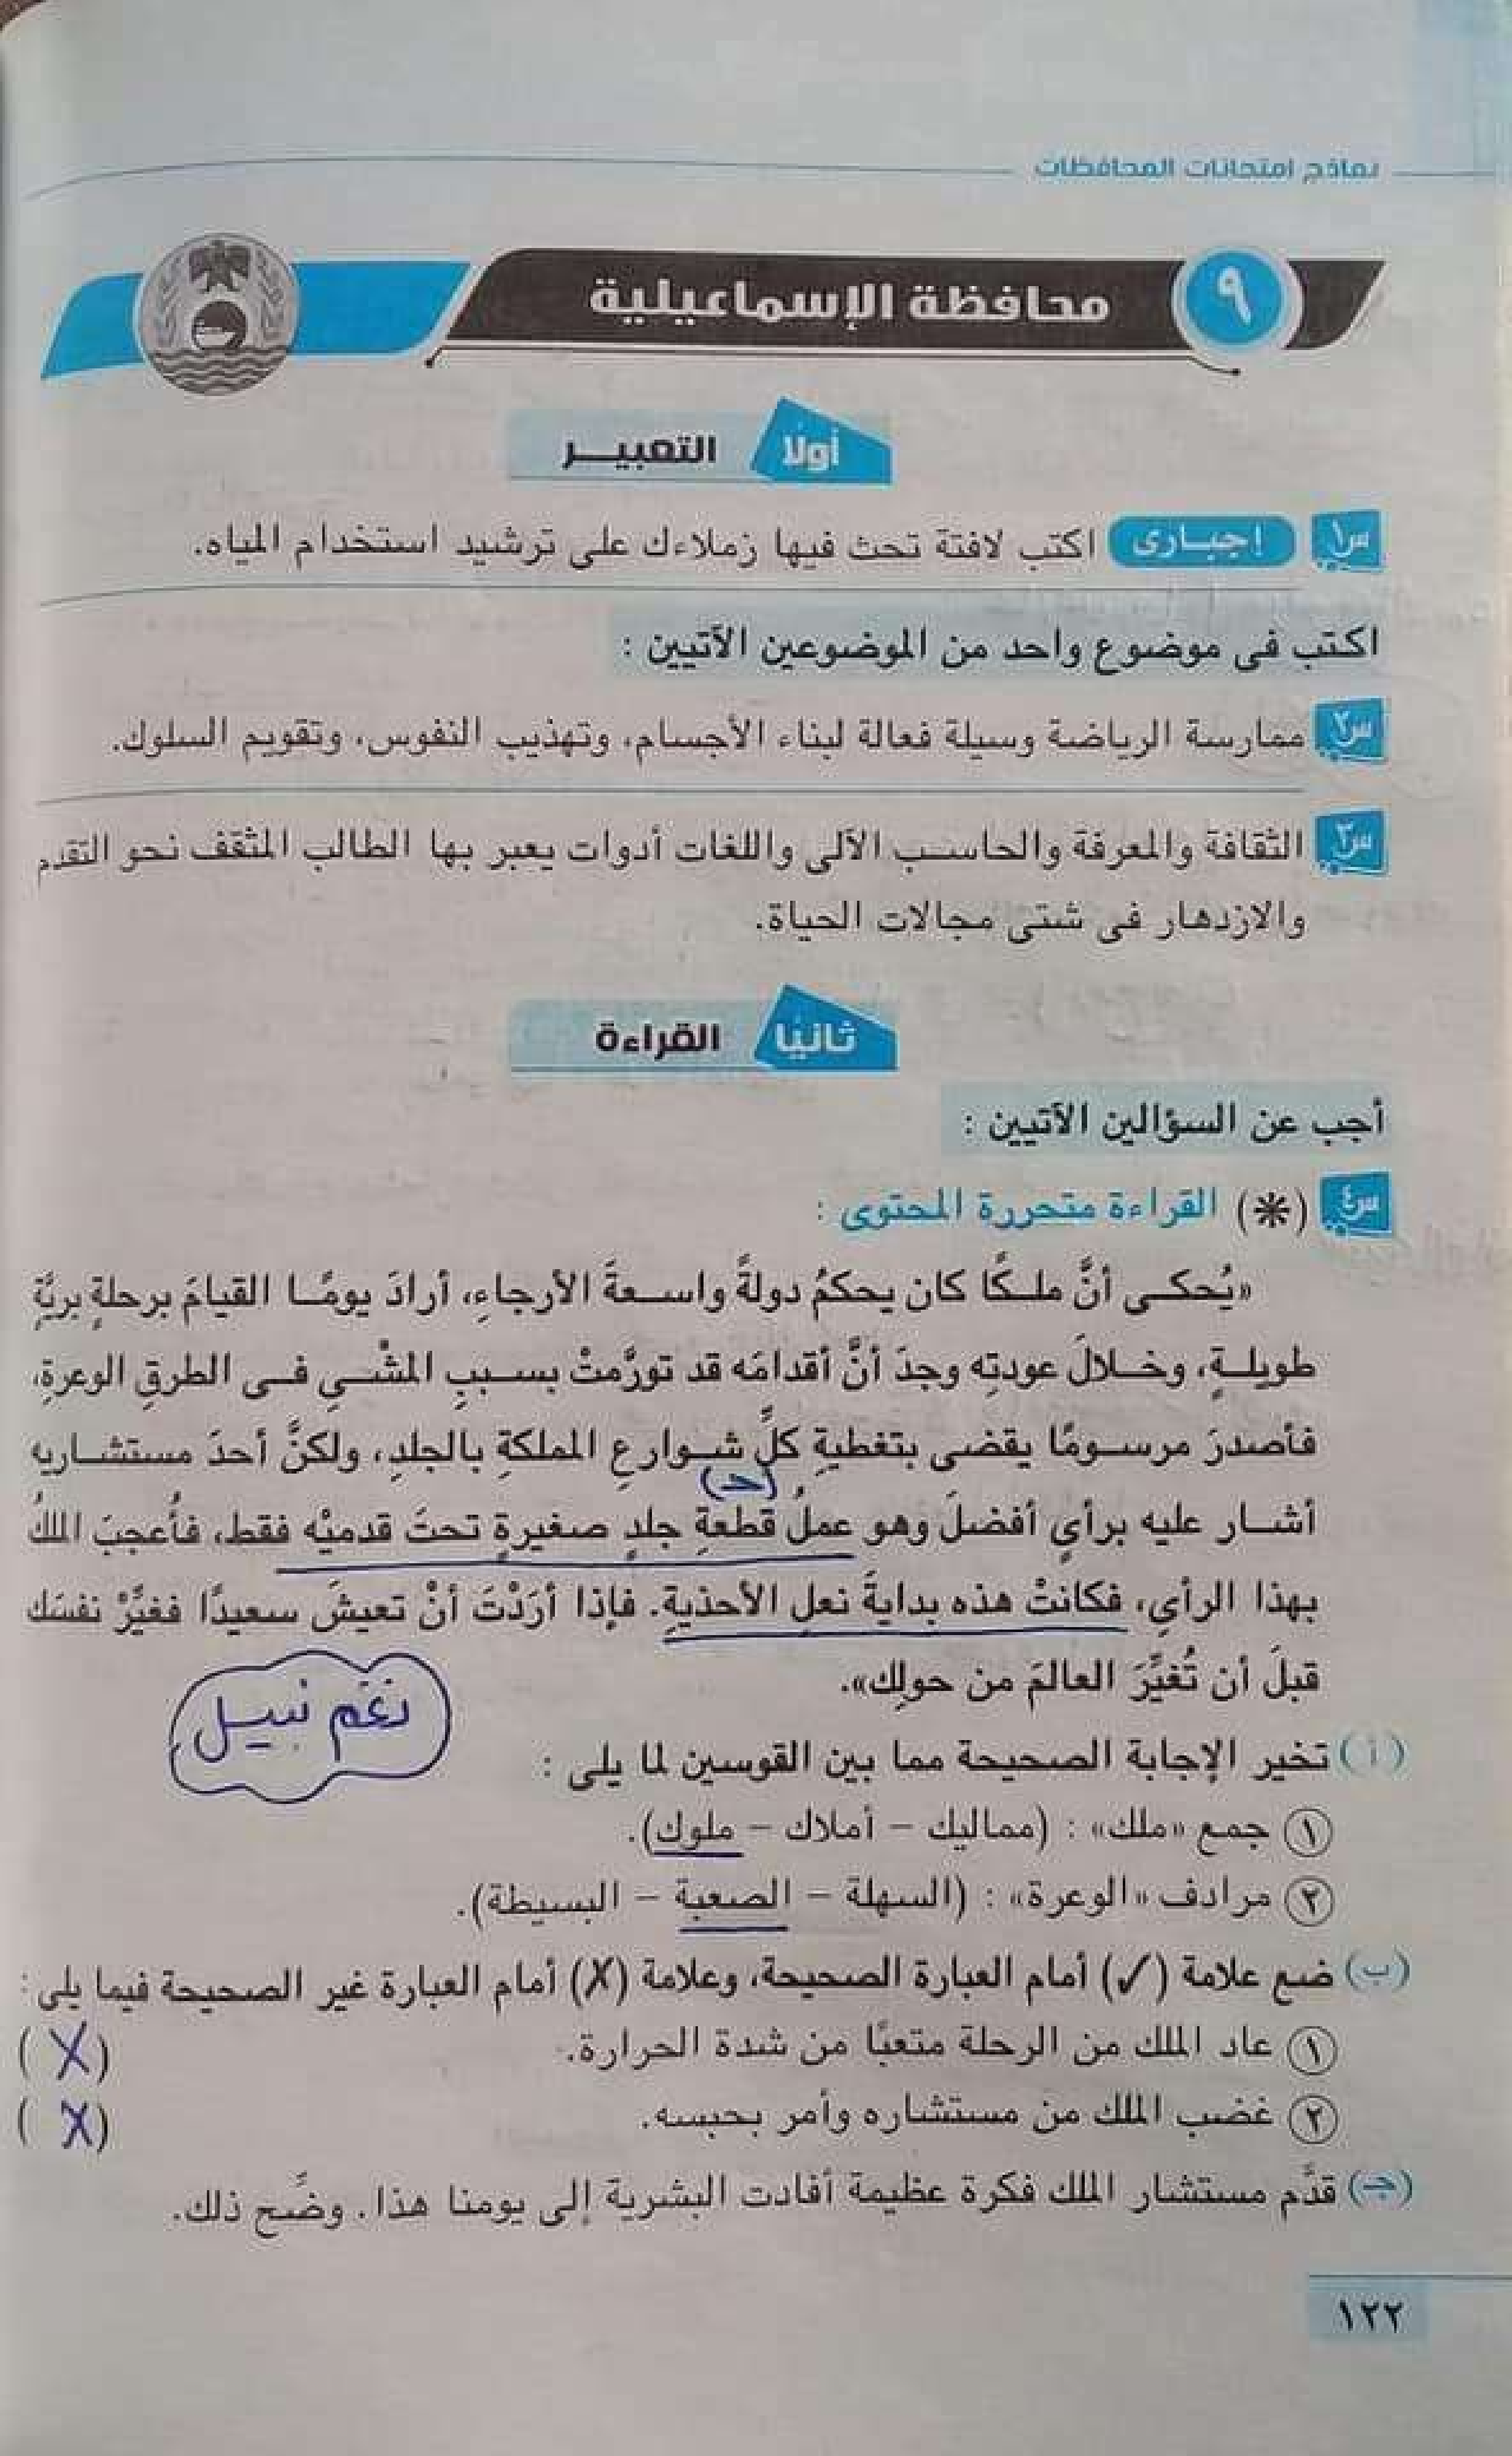 نماذج امتحانات المحافظات
٩ محافظة الإسماعيلية
أولًا التعبيـــر
س١ إجبارى اكتب لافتة تحث فيها زملاءك على ترشيد استخدام المياه.
اكتب فى موضوع واحد من الموضوعين الآتيين :
س٢ ممارسة الرياضة وسيلة فعالة لبناء الأجسام، وتهذيب النفوس، وتقويم السلوك.
س٣ الثقافة والمعرفة والحاسب الآلى واللغات أدوات يعبر بها الطالب المثقف نحو التقدم
والازدهار فى شتى مجالات الحياة.
ثانيًا القراءة
أجب عن السؤالين الآتيين :
س٤ (*) القراءة متحررة المحتوى :
«يُحكى أنَّ ملكًا كان يحكمُ دولةً واسعةَ الأرجاءِ، أرادَ يومًا القيامَ برحلةٍ بريَّةٍ
طويلةٍ، وخلالَ عودتِه وجدَ أنَّ أقدامَه قد تورَّمتْ بسببِ المشْىِ فى الطرقِ الوعرةِ،
فأصدرَ مرسومًا يقضى بتغطيةِ كلِّ شوارعِ المملكةِ بالجلدِ، ولكنَّ أحدَ مستشاريه
(جـ)
أشار عليه برأىٍ أفضلَ وهو عملُ قطعةِ جلدٍ صغيرةٍ تحتَ قدميْه فقط، فأُعجبَ الملكُ
بهذا الرأىِ، فكانتْ هذه بدايةَ نعلِ الأحذيةِ. فإذا أرَدْتَ أنْ تعيشَ سعيدًا فغيِّرْ نفسَك
قبلَ أن تُغيِّرَ العالمَ من حولِك».
نغم نبيل
(أ) تخير الإجابة الصحيحة مما بين القوسين لما يلى :
١ جمع «ملك» : (مماليك – أملاك – ملوك).
٢ مرادف «الوعرة» : (السهلة – الصعبة – البسيطة).
(ب) ضع علامة (✓) أمام العبارة الصحيحة، وعلامة (X) أمام العبارة غير الصحيحة فيما يلى :
١ عاد الملك من الرحلة متعبًا من شدة الحرارة. (X)
٢ غضب الملك من مستشاره وأمر بحبسه. (X)
(جـ) قدَّم مستشار الملك فكرة عظيمة أفادت البشرية إلى يومنا هذا. وضِّح ذلك.
١٢٢